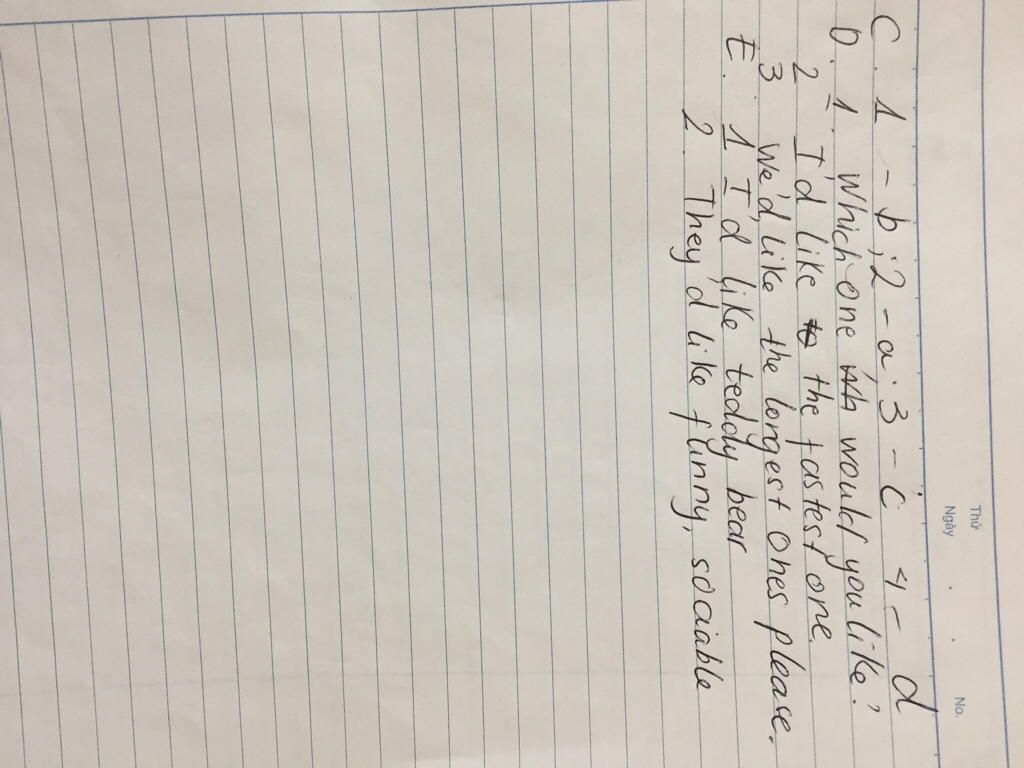 Thứ
Ngày
No.
C. 1 - b; 2 - a; 3 - c; 4 - d
D. 1. Which one would you like?
2 I'd like the fastest one.
3. We'd like the longest ones please.
E. 1 I'd like teddy bear
2. They'd like funny, sociable